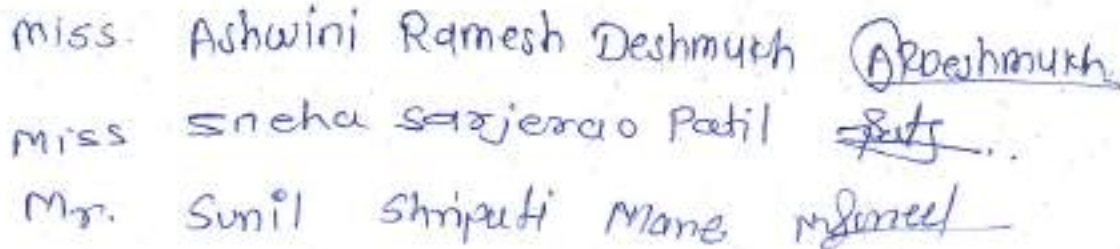 Miss. Ashwini Ramesh Deshmukh ARDeshmukh
Miss Sneha Sarjerao Patil
Mr. Sunil Shripati Mane